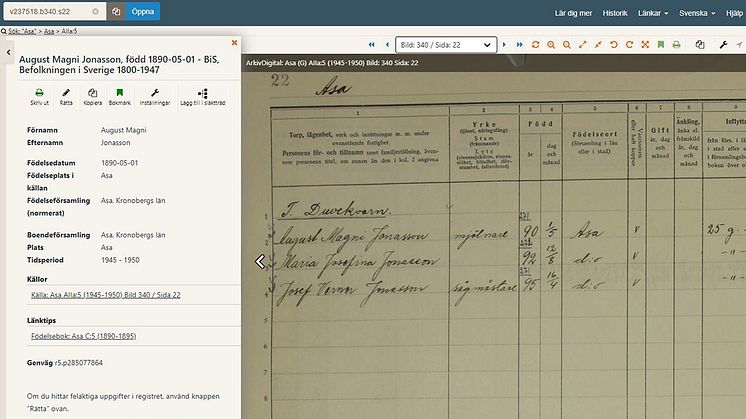 v237518.b340.s22
Öppna
Lär dig mer Historik Länkar Svenska Hjälp
Sök: "Asa" > Asa > AIIa:5
August Magni Jonasson, född 1890-05-01 - BiS, Befolkningen i Sverige 1800-1947
Skriv ut Rätta Kopiera Bokmärk Inställningar Lägg till i släktträd
Förnamn August Magni
Efternamn Jonasson
Födelsedatum 1890-05-01
Födelseplats i källan Asa
Födelseförsamling (normerat) Asa, Kronobergs län
Boendeförsamling Asa, Kronobergs län
Plats Asa
Tidsperiod 1945 - 1950
Källor
Källa: Asa AIIa:5 (1945-1950) Bild 340 / Sida 22
Länktips
Födelsebok: Asa C:5 (1890-1895)
Genväg r5.p285077864
Om du hittar felaktiga uppgifter i registret, använd knappen "Rätta" ovan.
Bild: 340 / Sida: 22
ArkivDigital: Asa (G) AIIa:5 (1945-1950) Bild: 340 Sida: 22
22 Asa
1 2 3 4 5 6 7 8 9
Torp, lägenhet, verk och inrättningar m. m. under ovanstående fastighet
Personens för- och tillnamn samt familjeställning, även-
som personens titel, om annan än den i kol. 2 angivna
Yrke
(tjänst, näringsfång)
Stam
(främmande)
Lyte
Född
år
dag och månad
Födelseort
(församling i län eller i stad)
Vaccinerats eller haft koppor
Gift
år, dag och månad
Änkling,
år, dag och månad
Inflytta
från förs. i lä
i stad eller
i församlingsb
boken över o
1 T. Duvekvarn. 271.
2 August Magni Jonasson mjölnare 90 1/5 Asa v 25 g.
272.
3 Maria Josefina Jonasson 92 12/8 d:o v -"-
4 Josef Verner Jonasson sågmästare 95 16/4 d:o v -"-
5
6
7
8